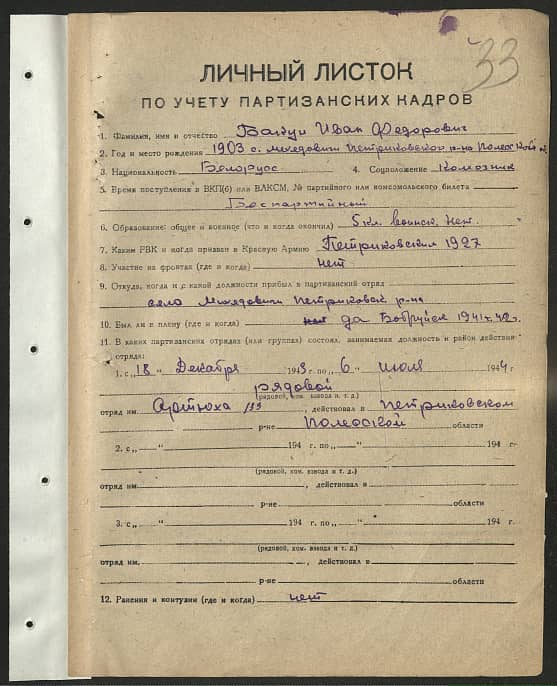 33
ЛИЧНЫЙ ЛИСТОК
ПО УЧЕТУ ПАРТИЗАНСКИХ КАДРОВ
1. Фамилия, имя и отчество Бакун Иван Федорович
2. Год и место рождения 1903 с. Мехедовичи Петриковского р-на Полесской
3. Национальность Белорус 4. Соцположение колхозник
5. Время поступления в ВКП(б) или ВЛКСМ, № партийного или комсомольского билета
Беспартийный
6. Образование: общее и военное (что и когда окончил) 5 кл. воинск. нет.
7. Каким РВК и когда призван в Красную Армию Петриковским 1927
8. Участие на фронтах (где и когда) нет
9. Откуда, когда и с какой должности прибыл в партизанский отряд
село Мехедовичи Петриковск р-на
10. Был ли в плену (где и когда) да Бобруйск 1941 г. 42 г.
11. В каких партизанских отрядах (или группах) состоял, занимаемая должность и район действия
отряда:
1. с „18 „ Декабря 1943 г. по „ 6 „ июля 1944 г
рядовой
(рядовой, ком. взвода и т. д.)
отряд им. 133 , действовал в Петриковском
р-не Полеской области
2. с „ „ 194 г. по „ „ 194 г.
(рядовой, ком. взвода и т. д.)
отряд им. , действовал в
р-не области
3. с „ „ 194 г. по „ „ 194 г.
(рядовой, ком. взвода и т. д.)
отряд им. , действовал в
р-не области
12. Ранения и контузии (где и когда) нет